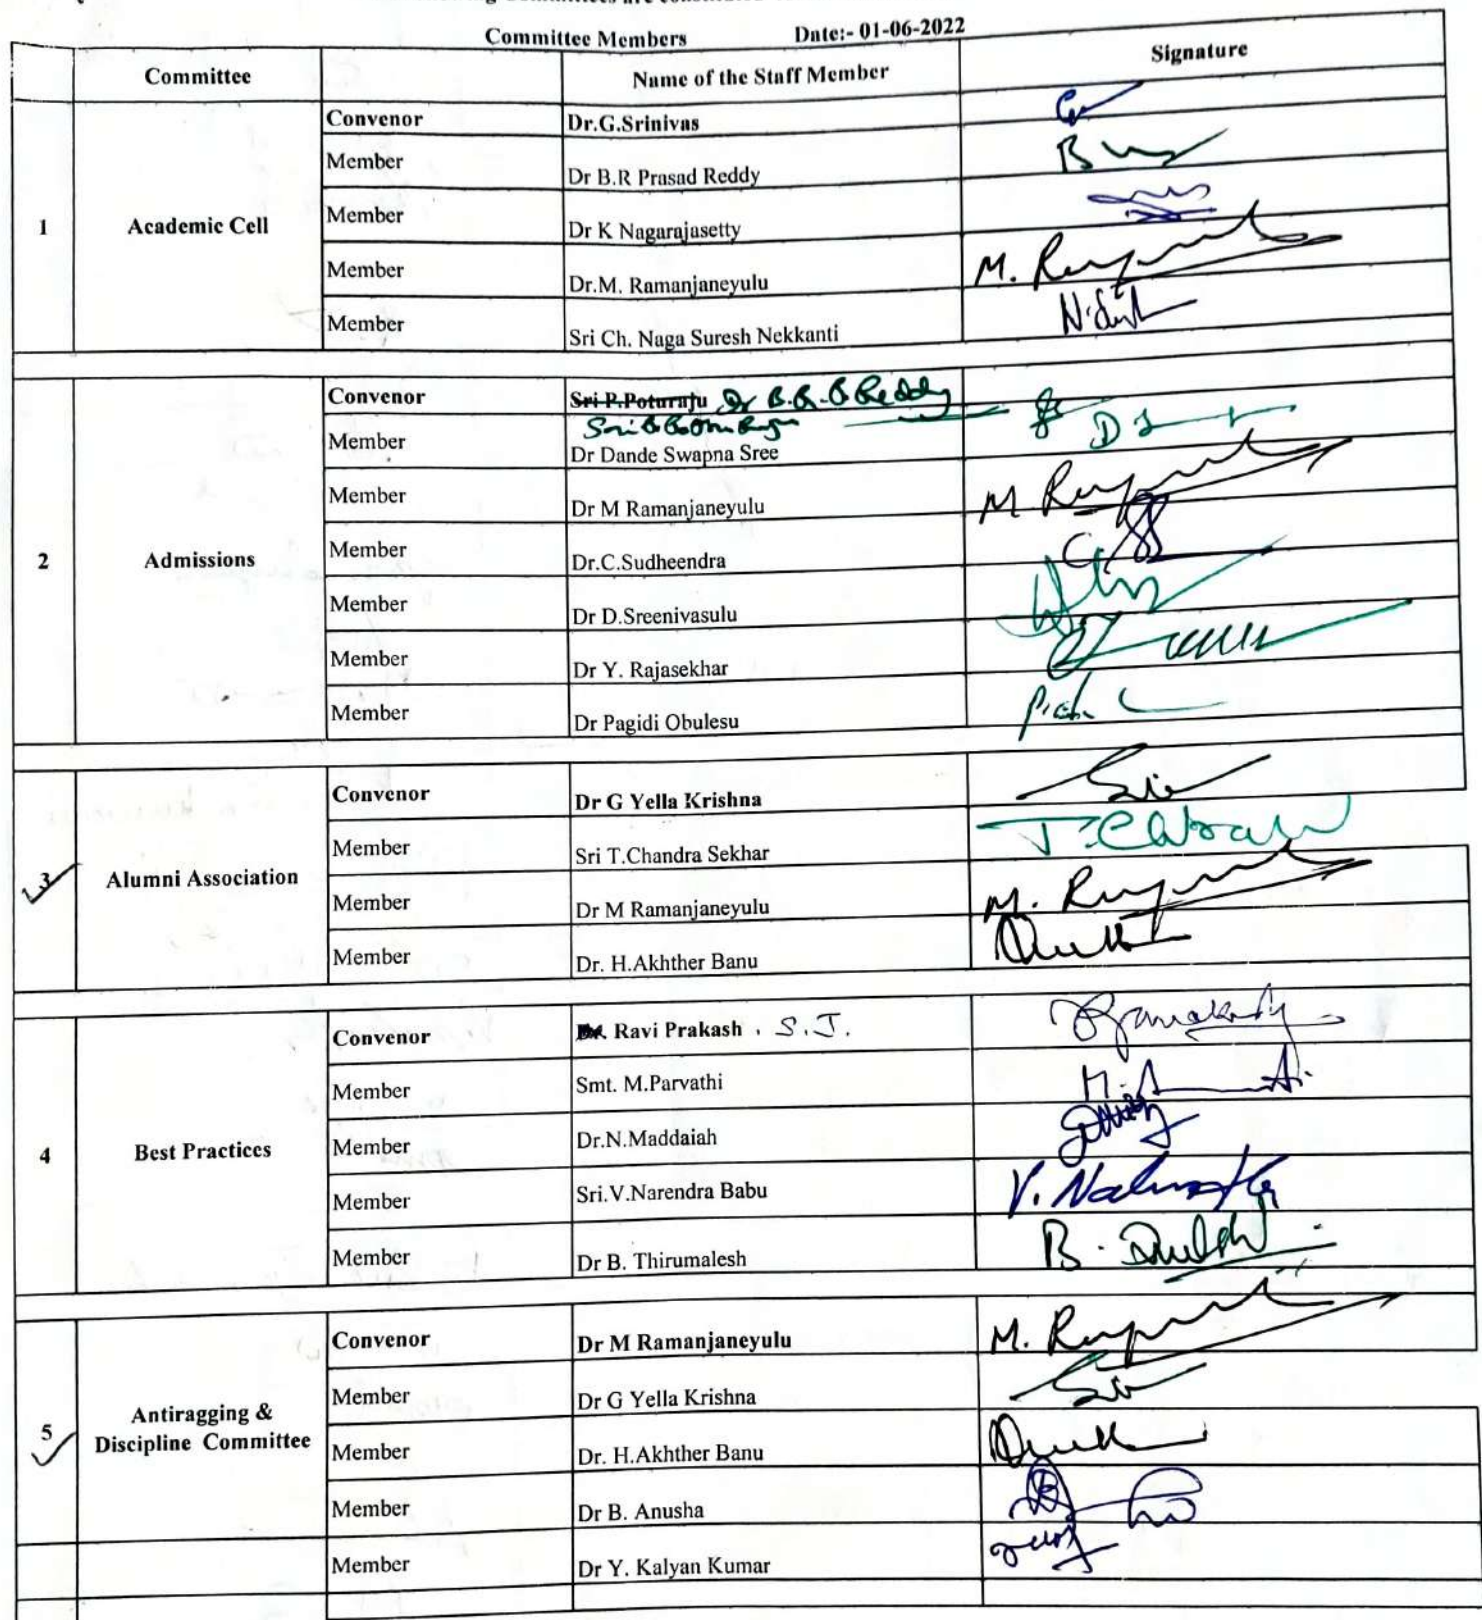 Committees are constituted
Committee Members Date:- 01-06-2022
Committee Name of the Staff Member Signature
1 Academic Cell
Convenor Dr.G.Srinivas
Member Dr B.R Prasad Reddy
Member Dr K Nagarajasetty
Member Dr.M. Ramanjaneyulu M.
Member Sri Ch. Naga Suresh Nekkanti
2 Admissions
Convenor Sri P.Poturaju Dr B.R.P Reddy
Member Dr Dande Swapna Sree
Member Dr M Ramanjaneyulu M
Member Dr.C.Sudheendra
Member Dr D.Sreenivasulu
Member Dr Y. Rajasekhar
Member Dr Pagidi Obulesu
3 Alumni Association
Convenor Dr G Yella Krishna
Member Sri T.Chandra Sekhar
Member Dr M Ramanjaneyulu M.
Member Dr. H.Akhther Banu
4 Best Practices
Convenor Ravi Prakash . S.J.
Member Smt. M.Parvathi
Member Dr.N.Maddaiah
Member Sri.V.Narendra Babu V.
Member Dr B. Thirumalesh B.
5 Antiragging &
Discipline Committee
Convenor Dr M Ramanjaneyulu M.
Member Dr G Yella Krishna
Member Dr. H.Akhther Banu
Member Dr B. Anusha
Member Dr Y. Kalyan Kumar